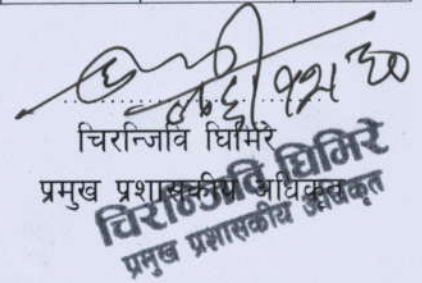 चिरन्जिवि घिमिरे
प्रमुख प्रशासकीय अधिकृत
चिरञ्जीवि घिमिरे
प्रमुख प्रशासकीय अधिकृत